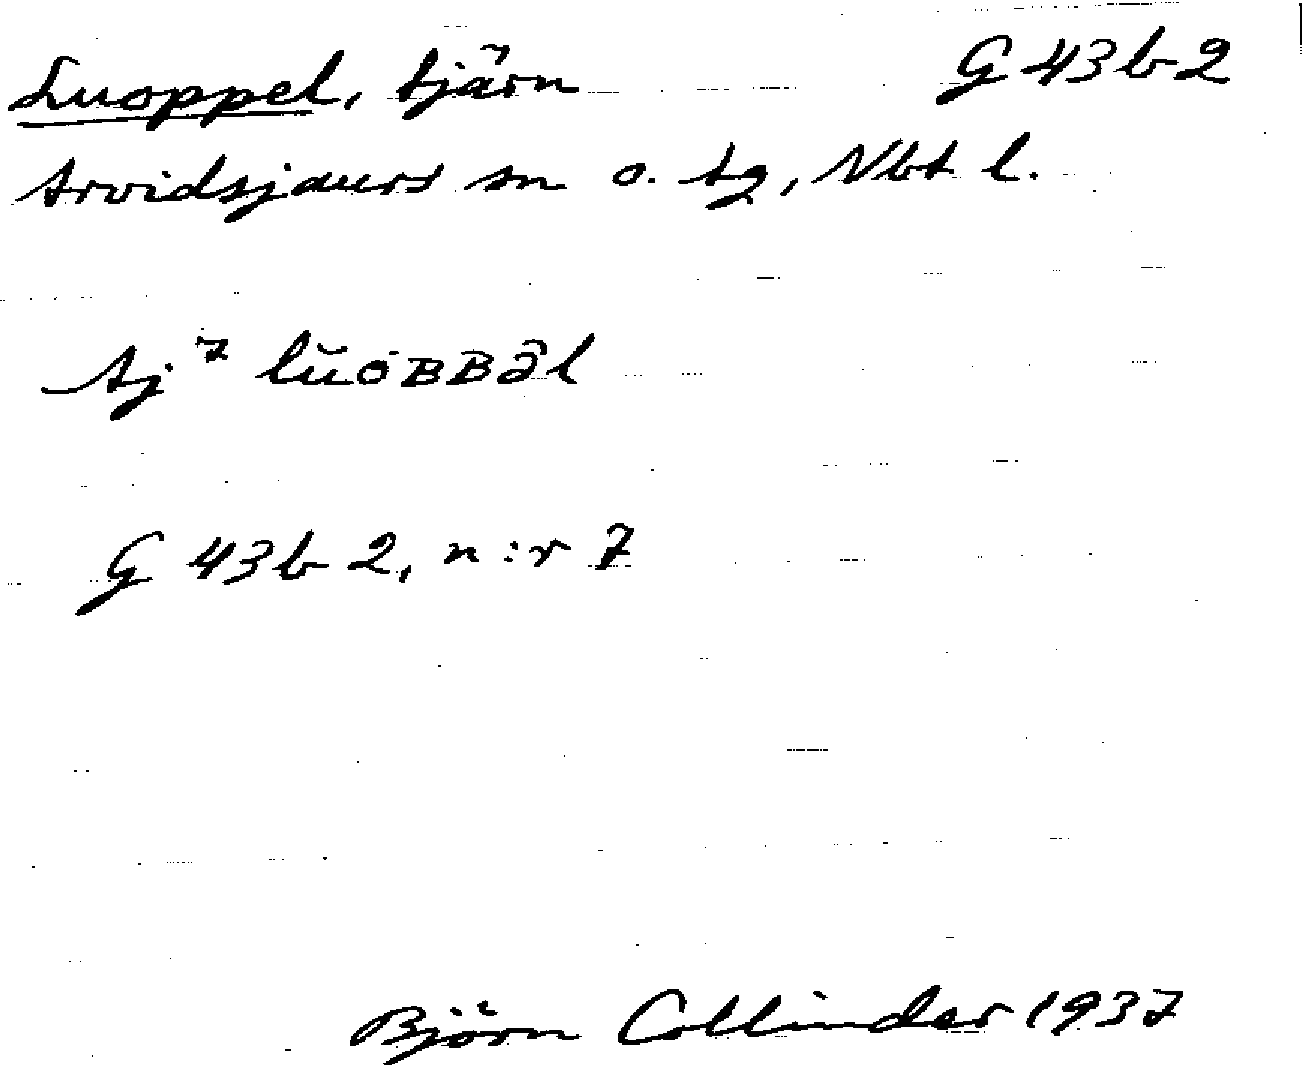 Luoppel, tjärn G 43 b 2
Arvidsjaurs sn o. tg, Nbt l.
Aj 7 lŭoʙʙəl
G 43 b 2, n:r 7
Björn Collinder 1937